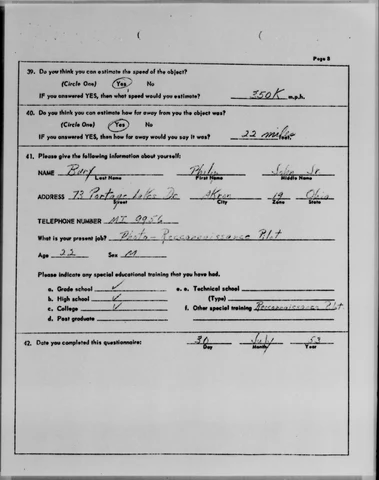 Page 8
39. Do you think you can estimate the speed of the object?
(Circle One) Yes No
IF you answered YES, then what speed would you estimate? 350K m.p.h.
40. Do you think you can estimate how far away from you the object was?
(Circle One) Yes No
IF you answered YES, then how far away would you say it was? 22 miles feet.
41. Please give the following information about yourself:
NAME Philip John Jr
Last Name First Name Middle Name
ADDRESS 73 Portage Lakes Dr Akron 19 Ohio
Street City Zone State
TELEPHONE NUMBER MI 0956
What is your present job? Photo-Reconnaissance Plt
Age 22 Sex M
Please indicate any special educational training that you have had.
a. Grade school ✓ e. Technical school
b. High school ✓ (Type)
c. College ✓ f. Other special training Reconnaissance Plt
d. Post graduate
42. Date you completed this questionnaire: 30 July 53
Day Month Year